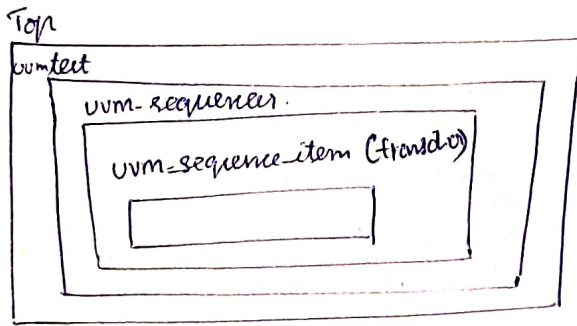 Top
uvmtest
uvm-sequencer.
uvm-sequence-item (transd-o)